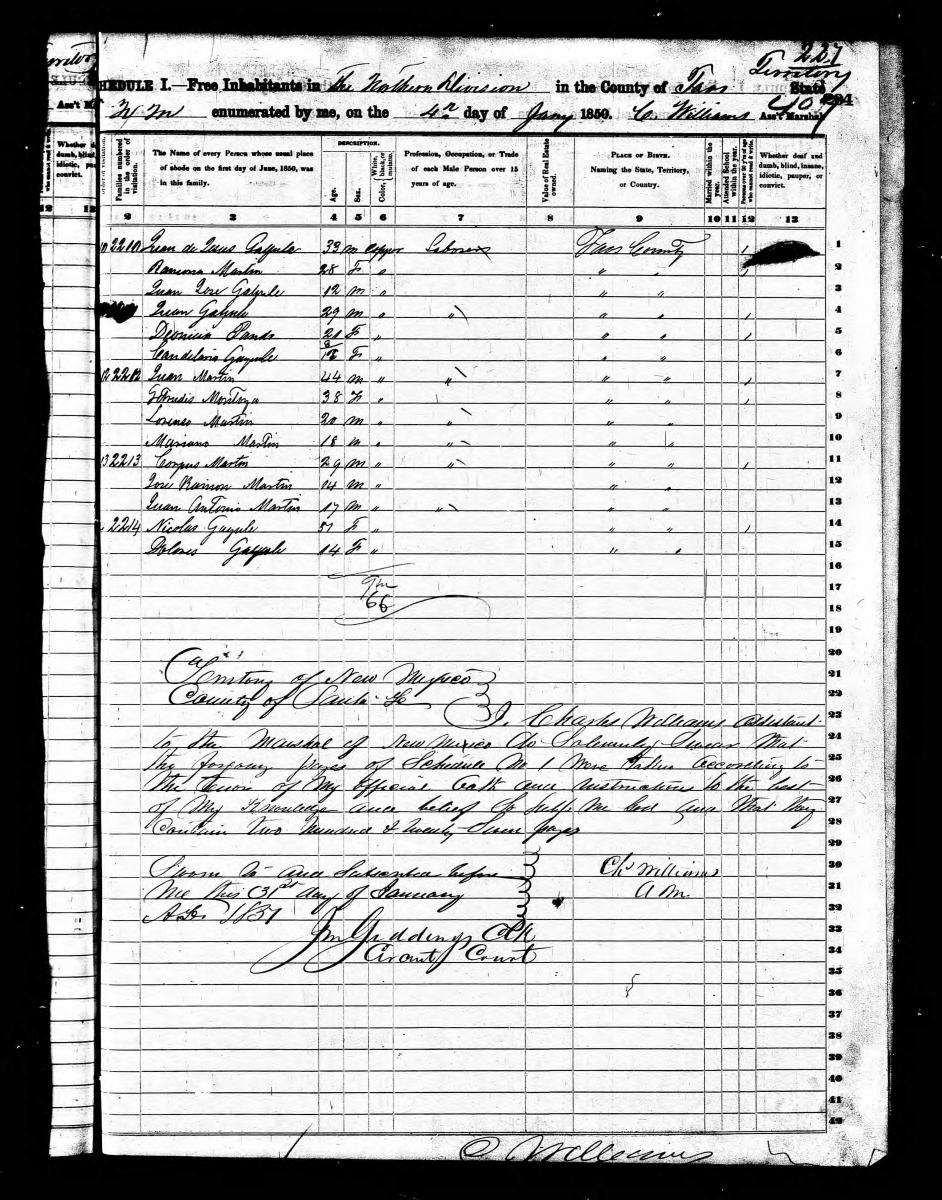 227
Territory
HEDULE I.—Free Inhabitants in The Northern Division in the County of Taos State
N M enumerated by me, on the 4th day of Jany 1850. C. Williams Ass't Marshal
407
Ass't M
DESCRIPTION.
Families numbered in the order of visitation.
The Name of every Person whose usual place of abode on the first day of June, 1850, was in this family.
Age.
Sex.
Color, White, black, or mulatto.
Profession, Occupation, or Trade of each Male Person over 15 years of age.
Value of Real Estate owned.
PLACE OF BIRTH. Naming the State, Territory, or Country.
Married within the year.
Attended School within the year.
Persons over 20 y'rs of age who cannot read & write.
Whether deaf and dumb, blind, insane, idiotic, pauper, or convict.
2 3 4 5 6 7 8 9 10 11 12 13
Juan de Jesus Gayule 33 m Copper Laborer Taos County 1 1
Ramona Martin 28 F " " " 1 2
Juan Jose Gayule 12 m " " " 3
Juan Gayule 29 m " " " " 1 4
Sands 21 F " " " 1 5
Candelaria Gayule F " " " 6
2212 Juan Martin 44 m " " " " 1 7
Montoya 38 F " " " 1 8
Lorenzo Martin 20 m " " " 9
Mariano Martin 18 m " " " " 10
13 2213 Corpus Martin 29 m " " " " 1 11
Jose Ramon Martin 14 m " " " 12
Juan Antonio Martin 17 m " " " " 13
2214 Nicolas Gayule 51 F " " " 1 14
Dolores Gayule 14 F " " " 15
16
17
66 18
19
20
Territory of New Mexico 21
County of Santa Fe 22
I, Charles Williams assistant 23
to the Marshal of New Mexico do Solemnly Swear that 24
the foregoing pages of Schedule No 1 were taken according to 25
the tenor of my official Oath and instructions to the best 26
of my Knowledge and belief So help me God and that they 27
contain two hundred & twenty Seven pages 28
29
Sworn to and Subscribed before Chs Williams 30
me this 31st day of January A M. 31
AD 1851 32
Giddings Clk 33
Court 34
35
36
37
38
39
40
41
42
C Williams